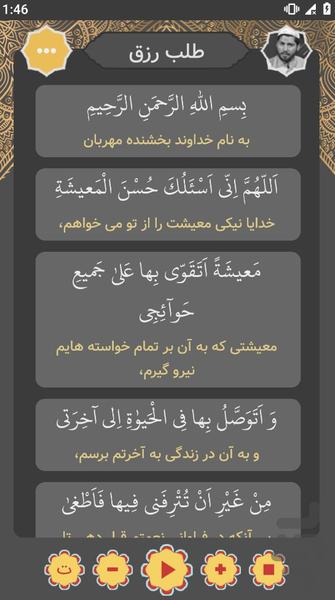 1:46
طلب رزق
بِسمِ اللهِ الرَّحمَنِ الرَّحِیمِ
به نام خداوند بخشنده مهربان
اَللّهُمَّ اِنّی اَسْئَلُكَ حُسْنَ الْمَعیشَةِ
خدایا نیکی معیشت را از تو می خواهم،
مَعیشَةً اَتَقَوّی بِها عَلیٰ جَمیعِ
حَوآئِجِی
معیشتی که به آن بر تمام خواسته هایم
نیرو گیرم،
وَ اَتَوَصَّلُ بِها فِی الْحَیٰوةِ اِلی آخِرَتی
و به آن در زندگی به آخرتم برسم،
مِنْ غَیْرِ اَنْ تُتْرِفَنی فیها فَاَطْغیٰ
ت